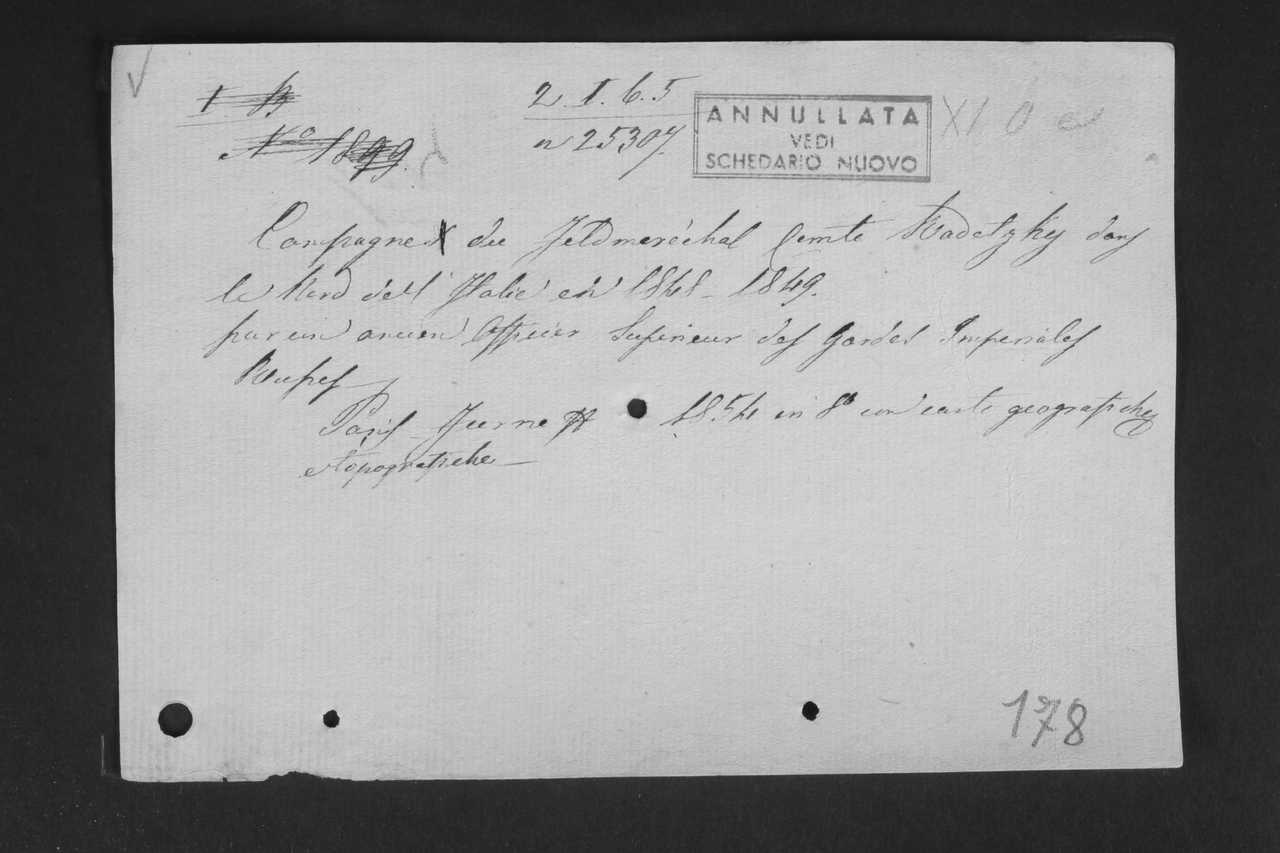 I. B
2. I. 6. 5
ANNULLATA
VEDI
SCHEDARIO NUOVO
XI 0 e
No 1899.
n 25307.
Campagnes du Feldmaréchal Comte Radetzky dans
le Nord de l'Italie en 1848-1849.
par un ancien Officier Supérieur des Gardes Imperiales
Russes
Paris 1854 in 8° con carte geografiche
e topografiche
178